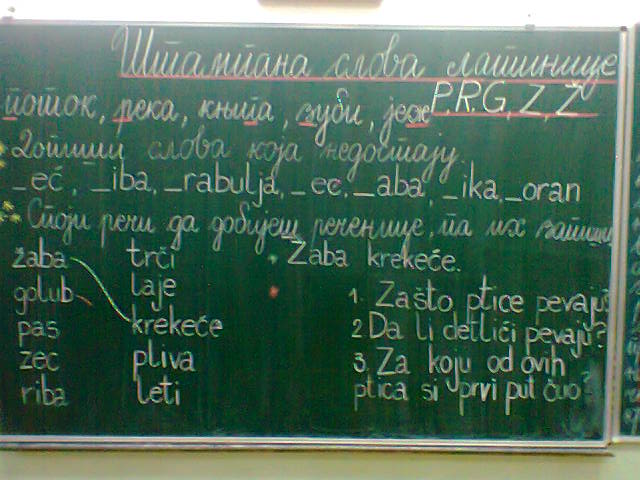 Штампана слова латинице
поток, река, књига, зуби, јеж P, R, G, Z, Ž
Допиши слова која недостају.
_eć, _iba, _rabulja, _ec, _aba, _ika, _oran
Споји речи да добијеш реченице, па их запиши
žaba trči Žaba krekeće.
golub laje 1. Zašto ptice pevaju?
pas krekeće 2 Da li detlići pevaju?
zec pliva 3. Za koju od ovih
riba leti ptica si prvi put čuo